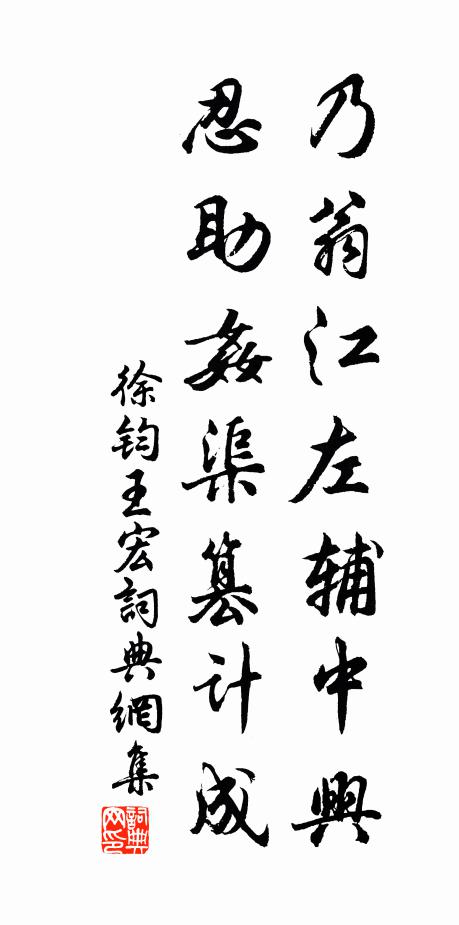 乃翁江左辅中興
忍助姦渠篡计成
徐钧王宏詞典網集
詞典
网印